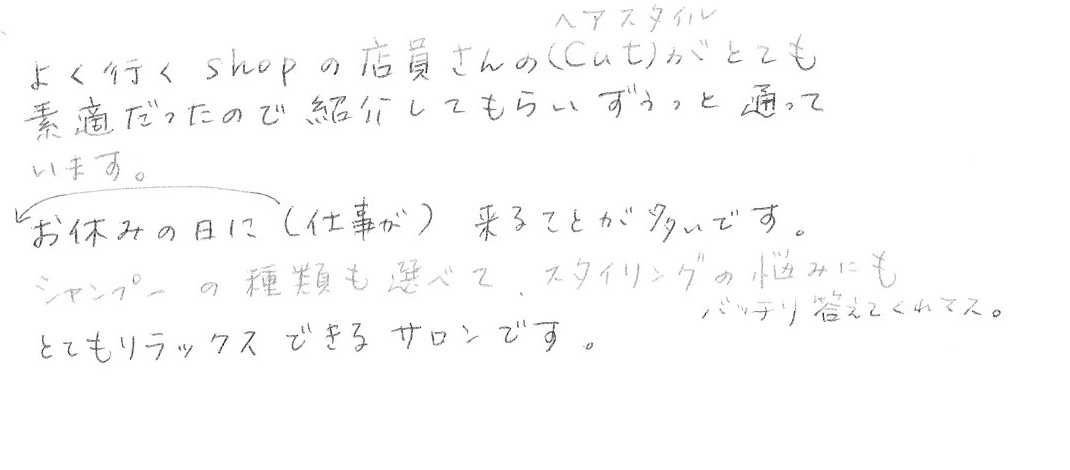 ヘアスタイル
よく行く shopの店員さんの(Cut)がとても
素適だったので紹介してもらいずうっと通って
います。
お休みの日に(仕事が) 来ることが多いです。
シャンプーの種類も選べて、スタイリングの悩みにも
バッチリ答えてくれてマス。
とてもリラックスできるサロンです。